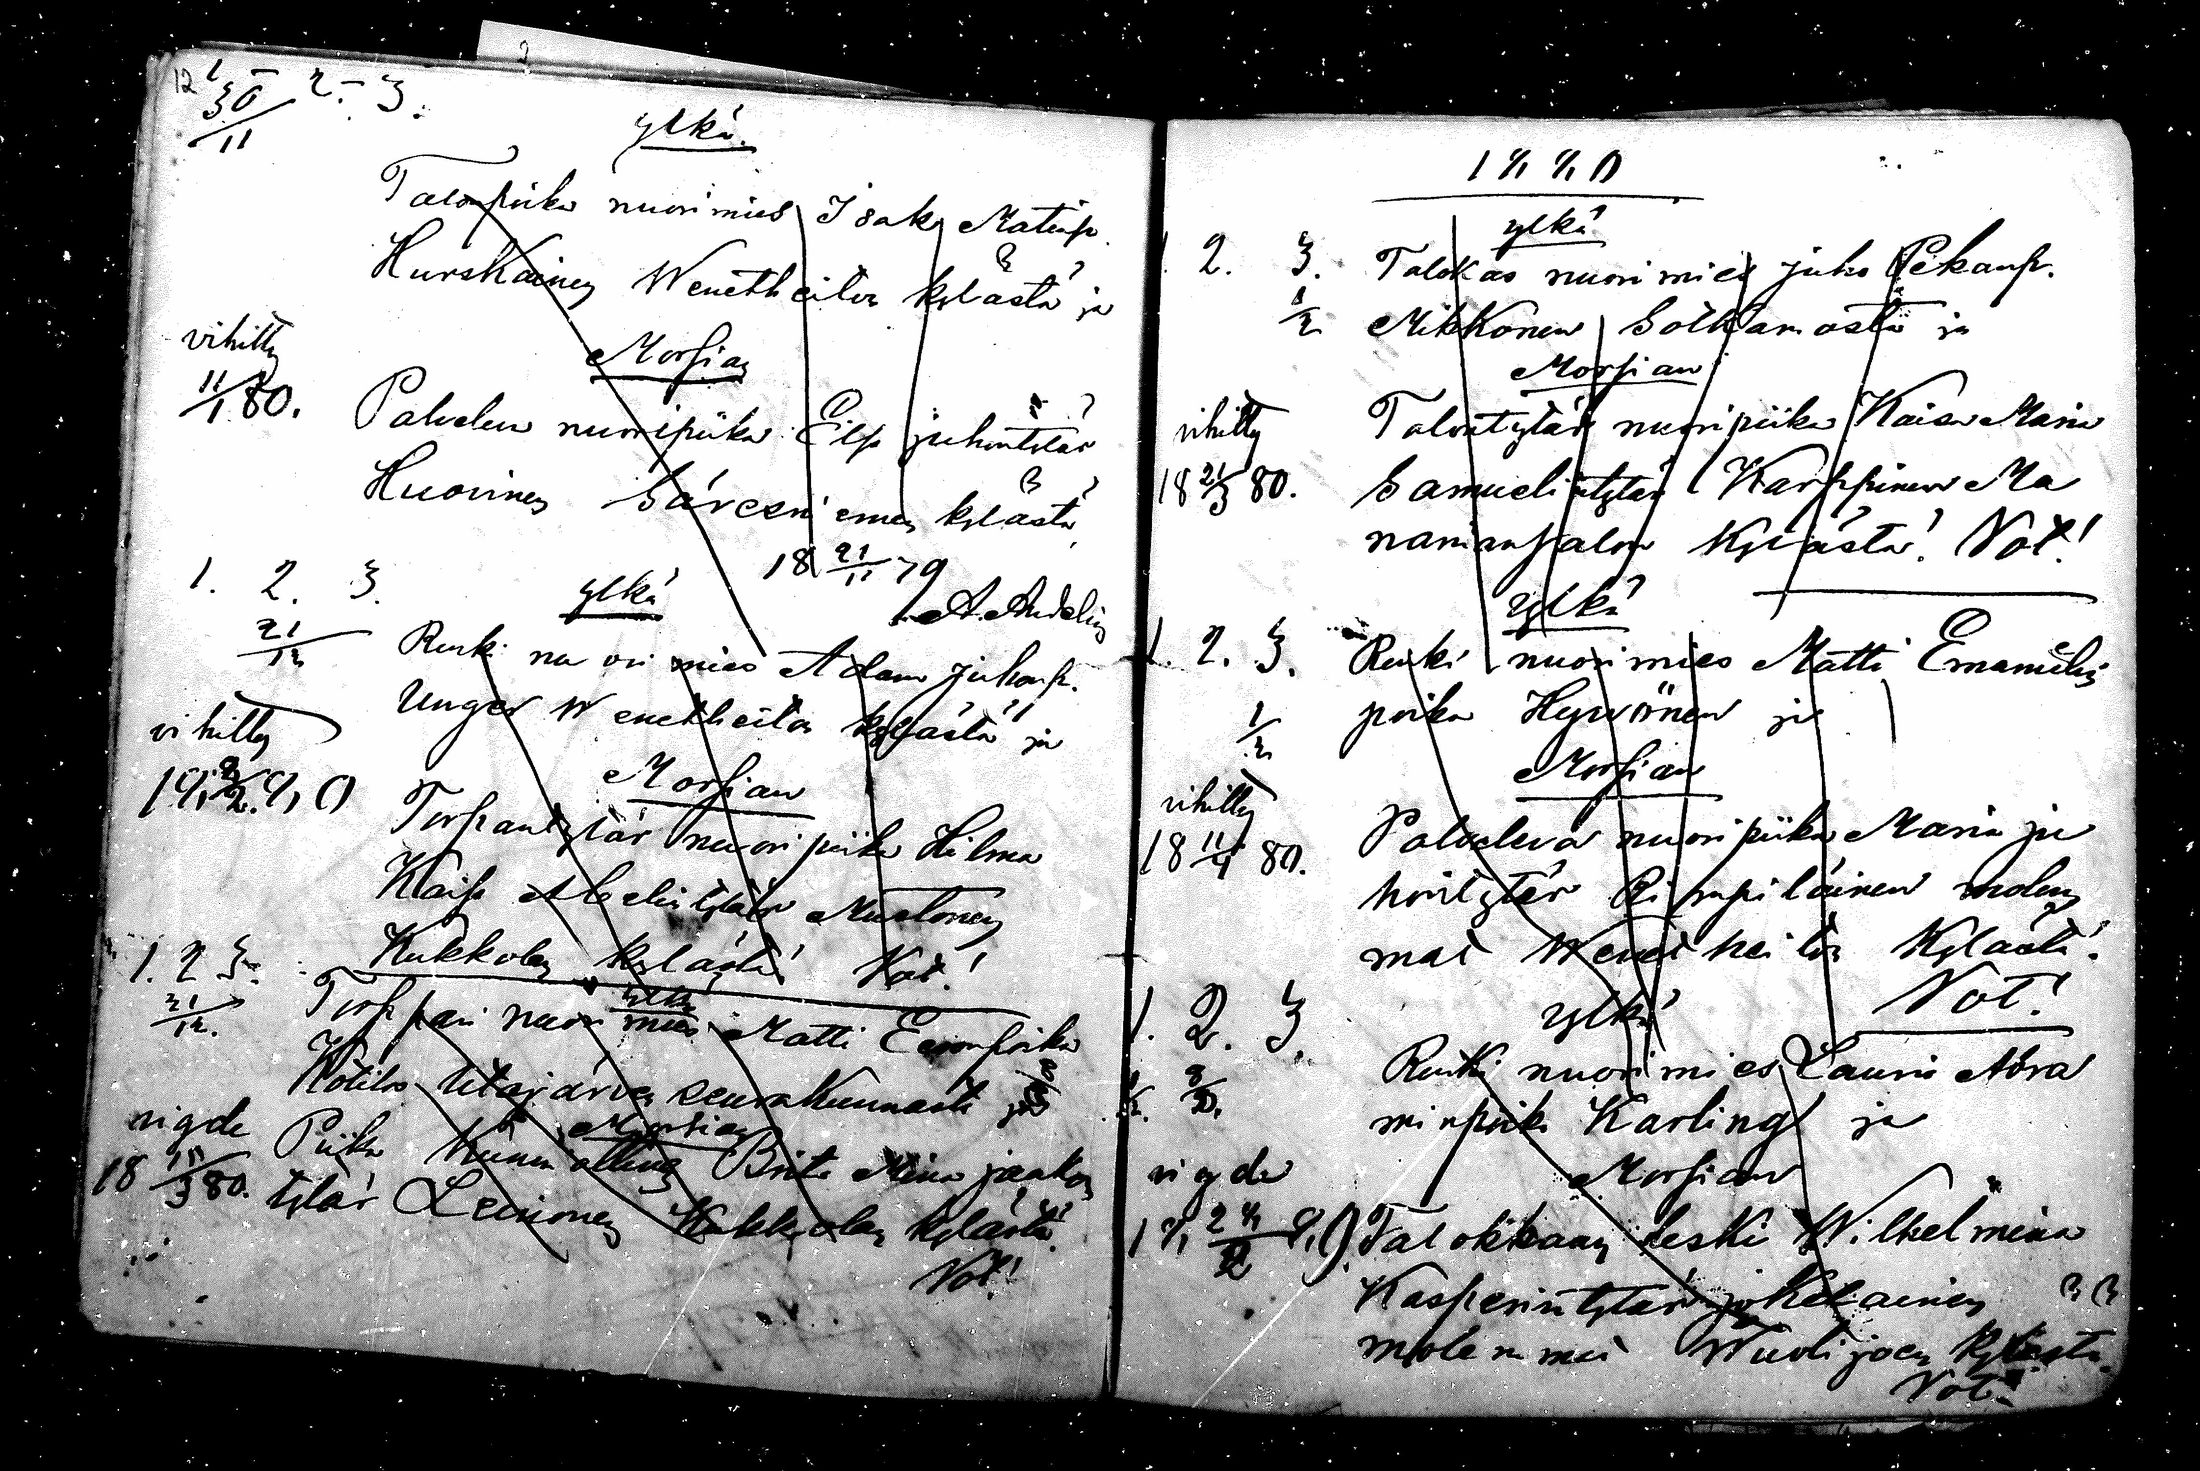 12 1 2. 3.
30/11
ylkä.
Talonpoika nuorimies Isak Matinp.
Hurskainen Wenetheiton kylästä ja
vihitty
Morsian
11/1 80.
Palvelia nuoripiika Elsa juhontytär
Huovinen Säresniemen kylästä
18 21/11 79
A. Andelin
1. 2. 3.
21/12
ylkä
Renki nuorimies Adam juhonp.
Unger Wenetheiton kylästä ja
vihitty
Morsian
18 /2. 80
Torpantytär nuoripiika Hilma
Kaisa Abelintytär Mustonen
Kukkolan kylästä Not!
1. 2 3.
21/12.
ylkä
Torppari nuorimies Matti Eeronpoika
Kotila Utajärven seurakunnasta ja
vigde
Morsian
18 /3 80.
Piika Brita Mina jaakon
tytär Leinonen Kukkolan kylästä.
Not!
1880
ylkä
1. 2. 3.
Talokas nuorimies juho Pekanp.
1/2
Mikkonen Sotkamosta ja
Morsian
vihitty
Talontytär nuoripiika Kaisa Maria
18 21/3 80.
Samuelintytär Karppinen Ma
namansalon kylästä! Not!
ylkä
1. 2. 3.
Renki nuorimies Matti Emanuelin
1/2
poika Hyvönen ja
Morsian
vihitty
Palveleva nuoripiika Maria ju
18 11/4 80.
hontytär Rimpiläinen molem
mat Wenetheiton kylästä.
Not!
ylkä
1. 2. 3.
Renki nuorimies Lauri Abra
minpoika Karling ja
vigde
Morsian
18 /2 80.
Talokkaan leski Wilhelmina
Kasperintytär jokelainen
molemmat Wuolijoen kylästä.
Not!